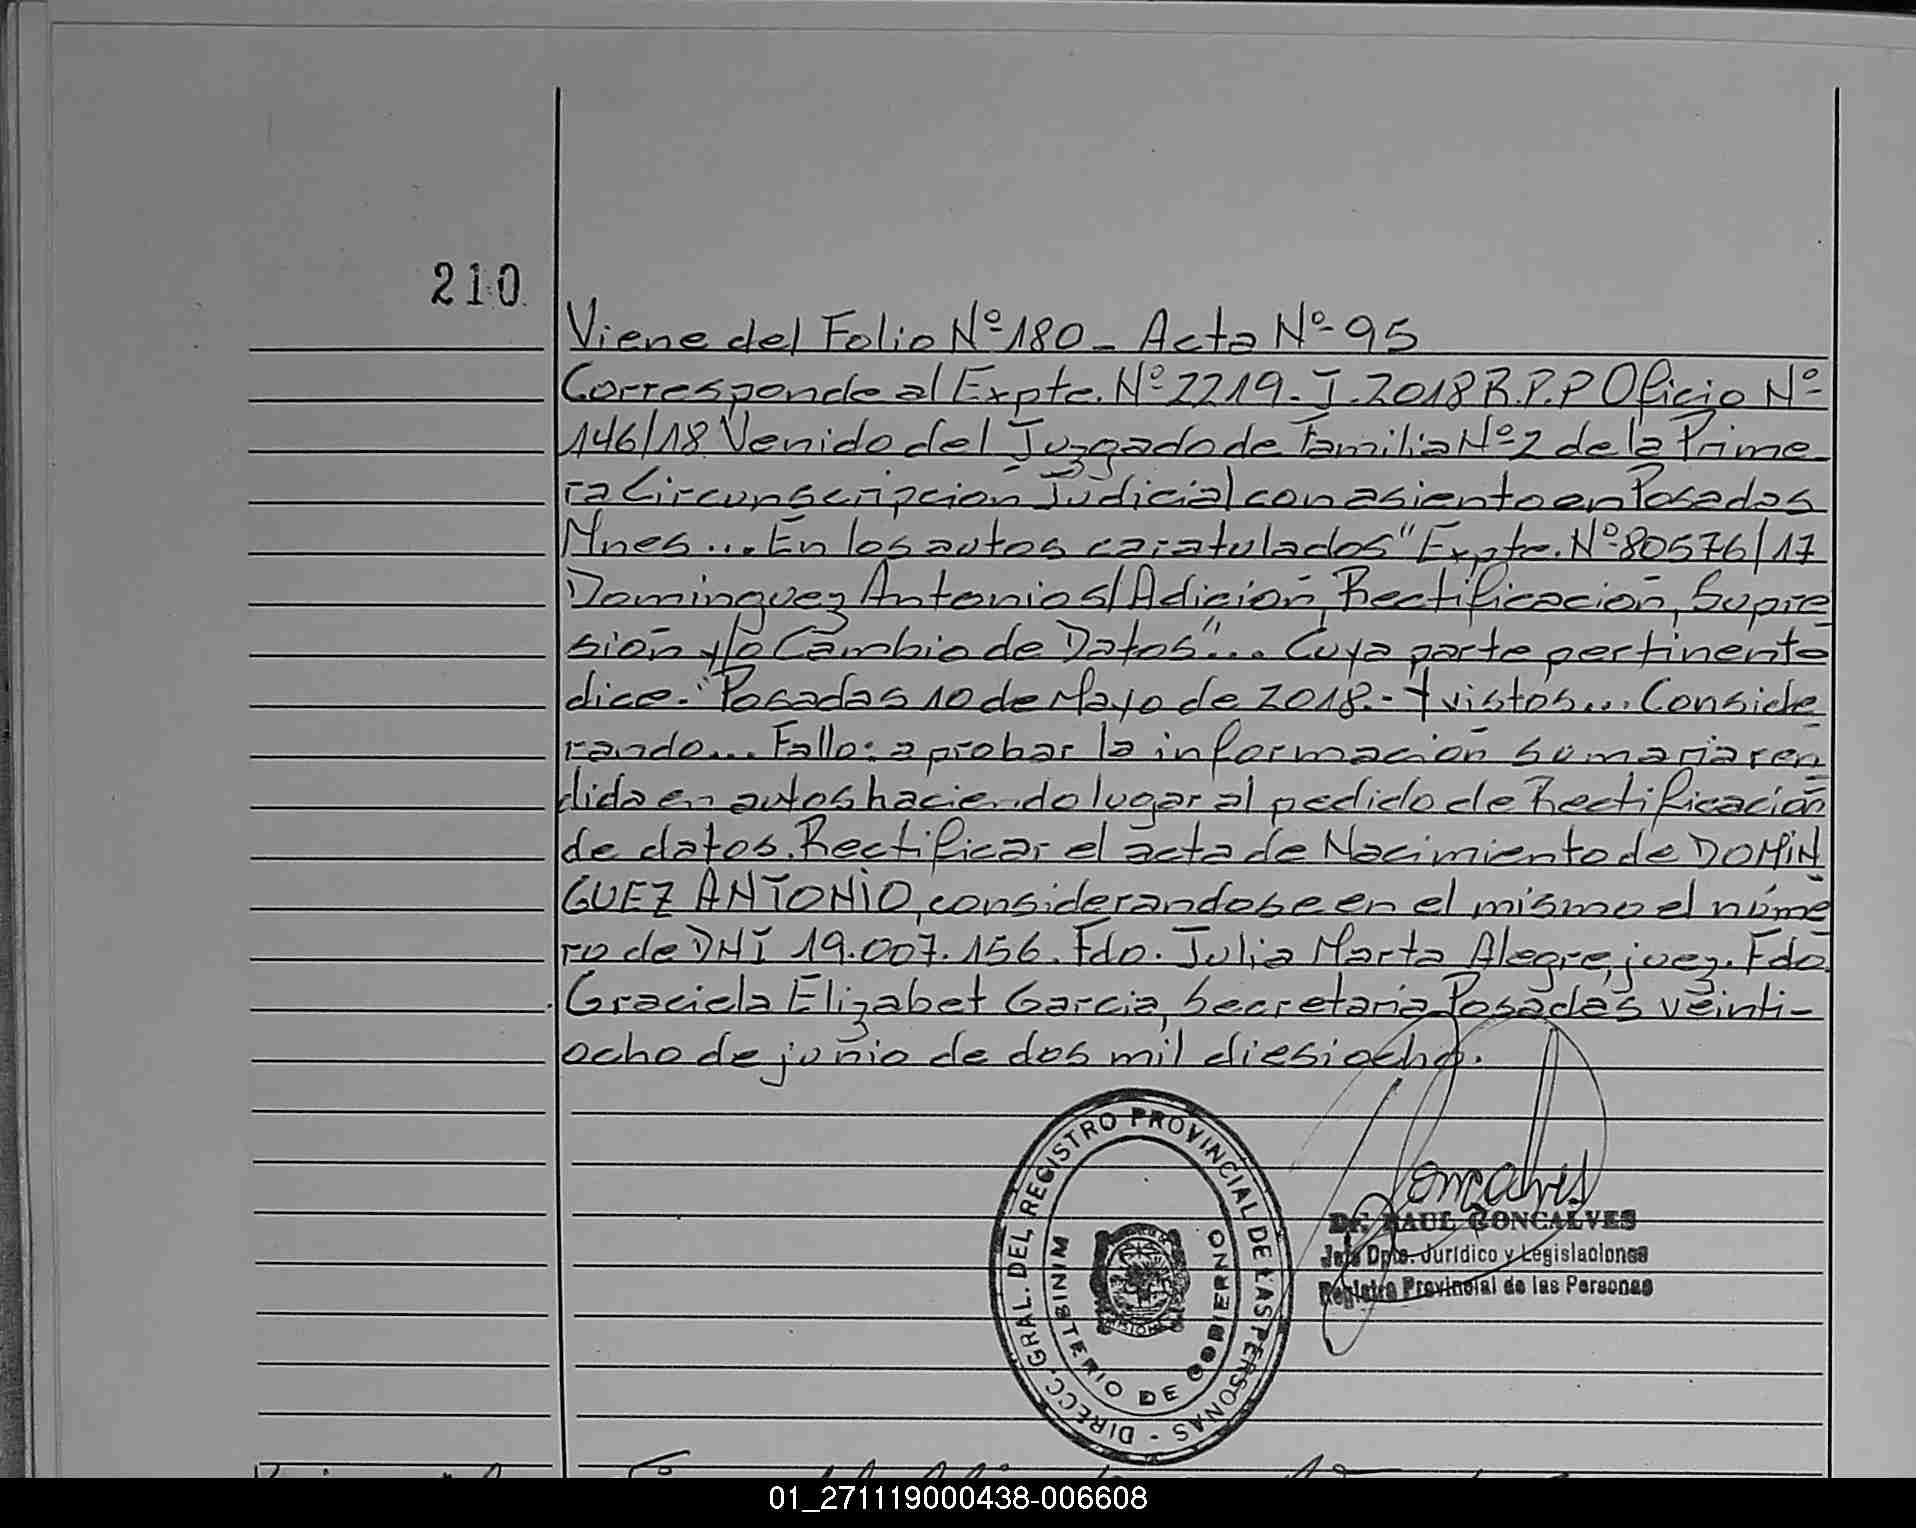 210
Viene del Folio Nº 180 - Acta Nº 95
Corresponde al Expte. Nº 2219. J. 2018 R.P.P Oficio Nº
146/18 Venido del Juzgado de Familia Nº 2 de la Prime
ra Circunscripcion Judicial con asiento en Posadas
Mnes... En los autos caratulados "Expte. Nº 80576/17
Dominguez Antonio s/ Adicion, Rectificacion, Supre
sión y/o Cambio de Datos"... Cuya parte pertinente
dice. "Posadas 10 de Mayo de 2018.- Y vistos... Conside
rando... Fallo: aprobar la información sumaria ren
dida en autos haciendo lugar al pedido de Rectificacion
de datos. Rectificar el acta de Nacimiento de DOMIN
GUEZ ANTONIO, considerandose en el mismo el núme
ro de DNI 19.007.156. Fdo. Julia Marta Alegre, juez. Fdo
Graciela Elizabet Garcia, Secretaria Posadas veinti-
ocho de junio de dos mil diesiocho.
DIRECC. GRAL. DEL REGISTRO PROVINCIAL DE LAS PERSONAS -
MINISTERIO DE GOBIERNO
Goncalves
Dr. RAUL GONCALVES
Jefe Dpto. Jurídico y Legislaciones
Registro Provincial de las Personas
01_271119000438-006608